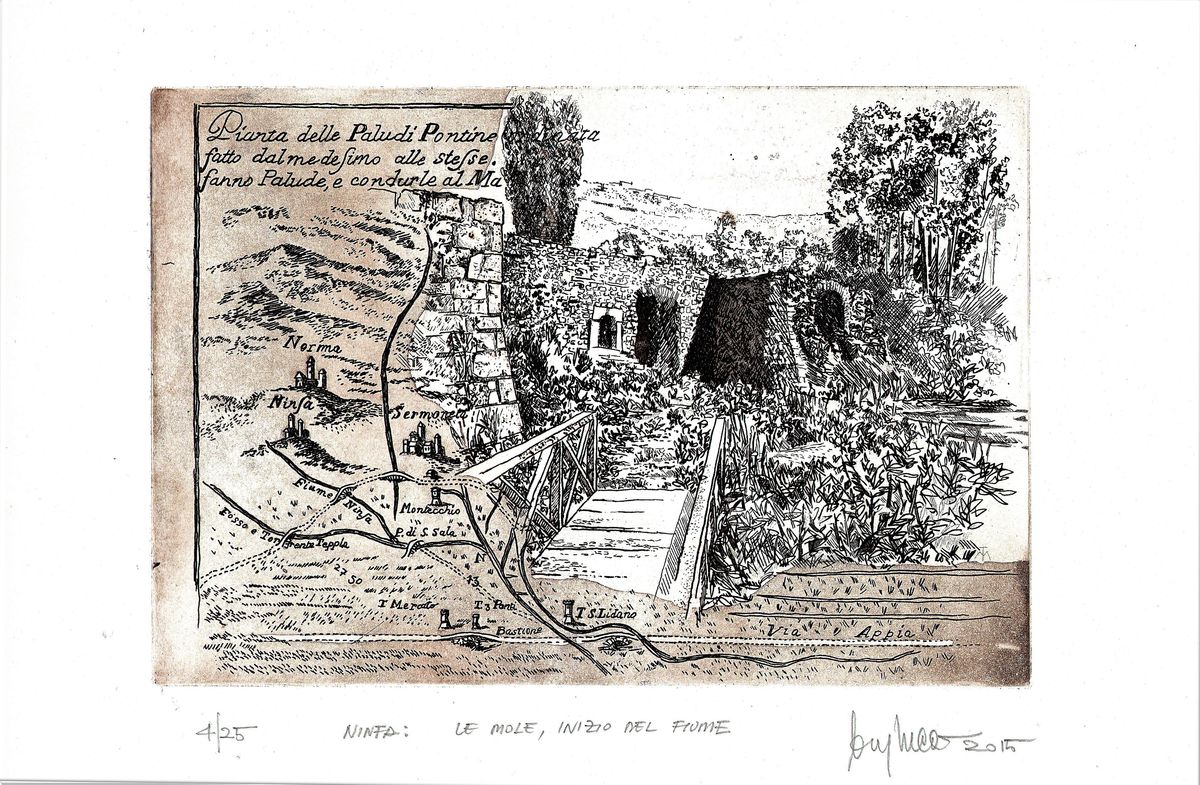 Pianta delle Paludi Pontine
fatto dal medesimo alle stesse.
fanno Palude, e condurle al Ma
Norma
Ninfa
Sermoneta
Fiume Ninfa
Montecchio
Fosso e Torrente Teppia
P. di S. Sala
T Mercato
T 3 Ponti
T S. Lidano
Bastione
Via Appia
4/25
NINFA: LE MOLE, INIZIO DEL FIUME
2015